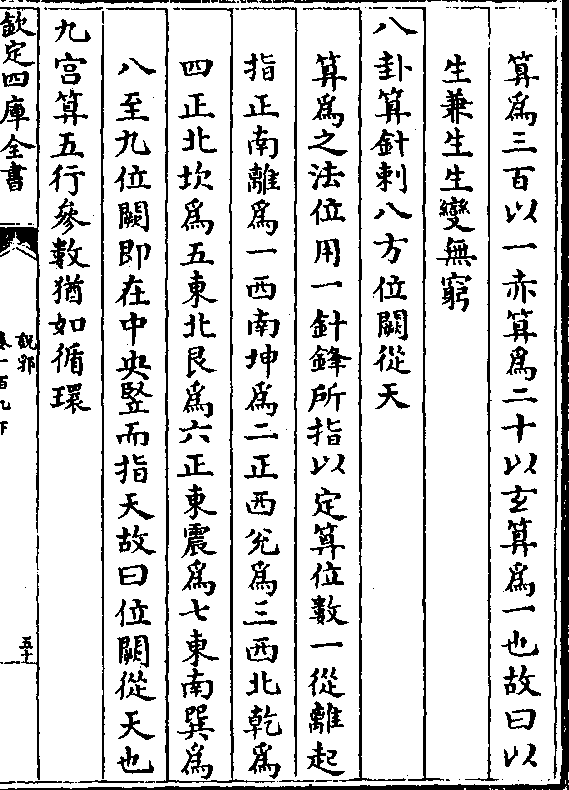 算為三百以一赤算為二十以玄算為一也故曰以
生兼生生變無窮
八卦算針刺八方位闕從天
算為之法位用一針鋒所指以定算位數一從離起
指正南離為一西南坤為二正西兊為三西北乾為
四正北坎為五東北艮為六正東震為七東南巽為
八至九位闕即在中央竪而指天故曰位闕從天也
九宫算五行參數猶如循環
欽定四庫全書
說郛
卷一百九下
五十